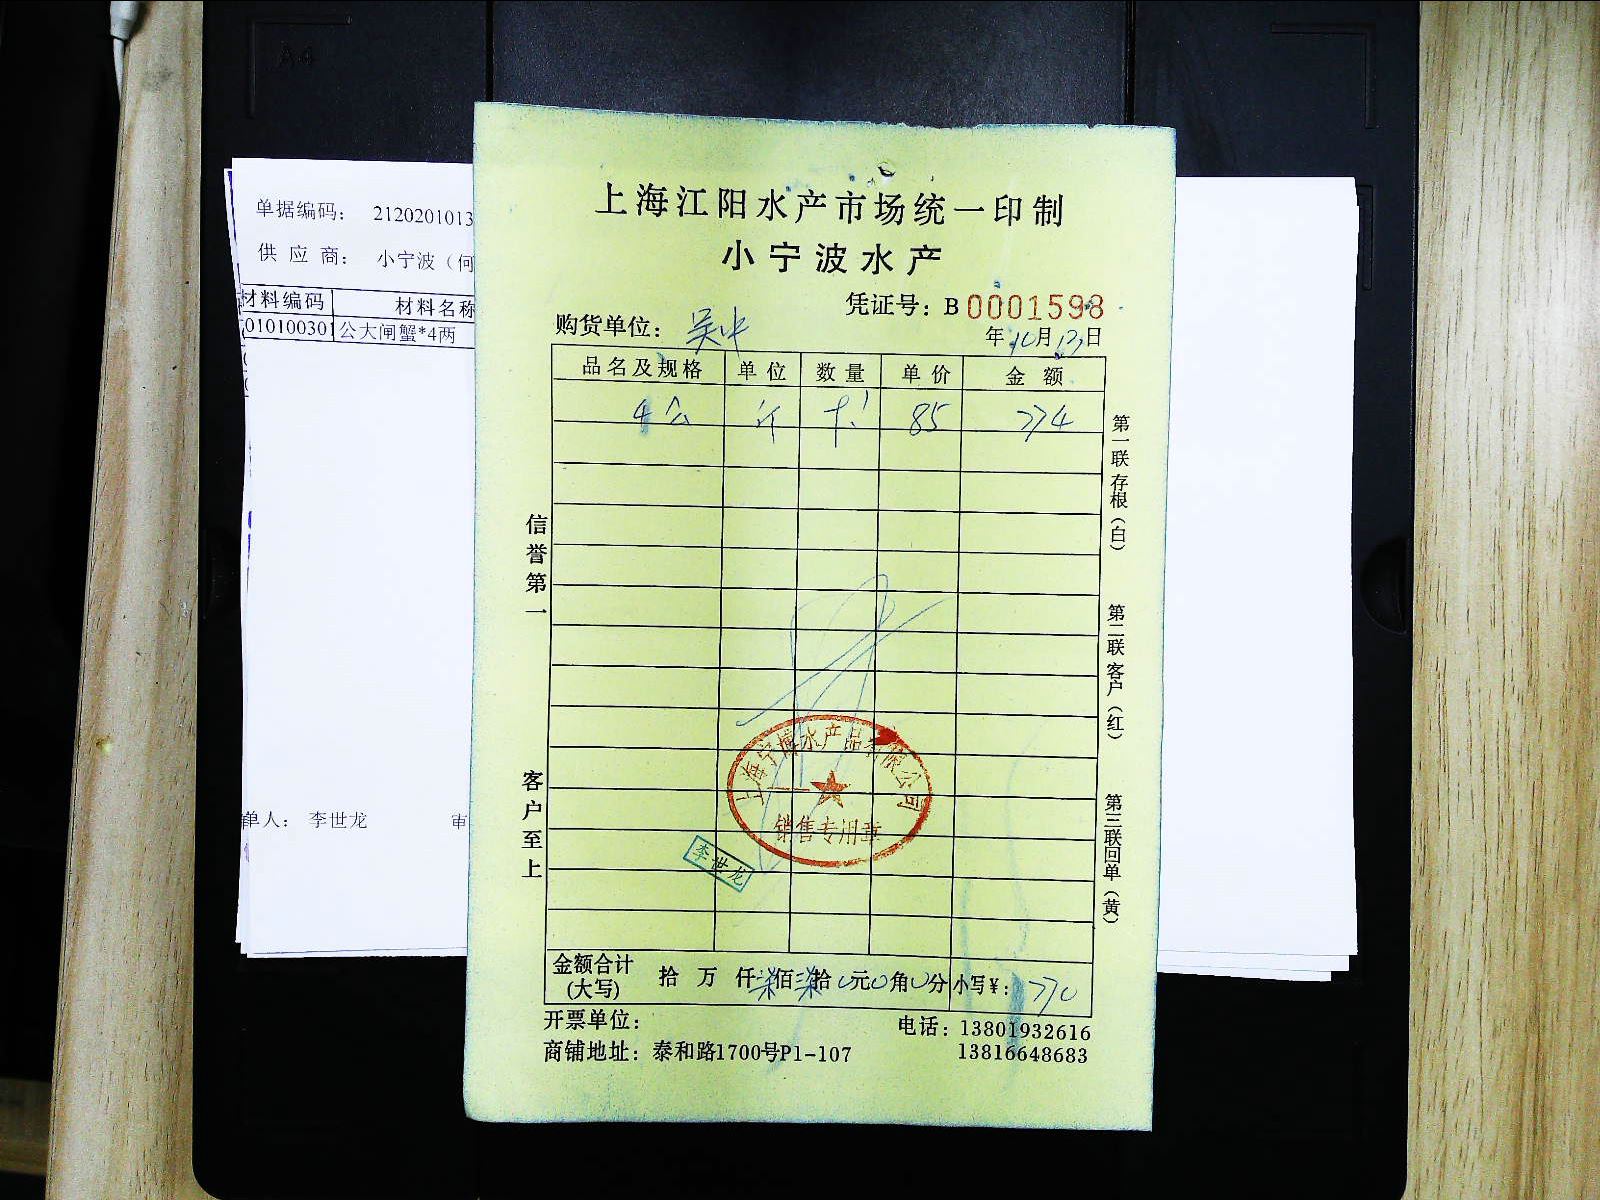 A4
单据编码： 2120201013
供 应 商： 小宁波（何
材料编码 材料名称
010100301 公大闸蟹*4两
单人： 李世龙 审
上海江阳水产市场统一印制
小宁波水产
凭证号：B 0001598
购货单位： 吴中
年10月13日
品名及规格 单位 数量 单价 金额
4公 斤 85 774
信誉第一
客户至上
第一联存根（白）
第二联客户（红）
第三联回单（黄）
上海宁博水产品有限公司
销售专用章
李世龙
金额合计(大写) 拾 万 仟柒佰柒拾0元0角0分 小写¥： 770
开票单位：
电话：13801932616
商铺地址：泰和路1700号P1-107
13816648683